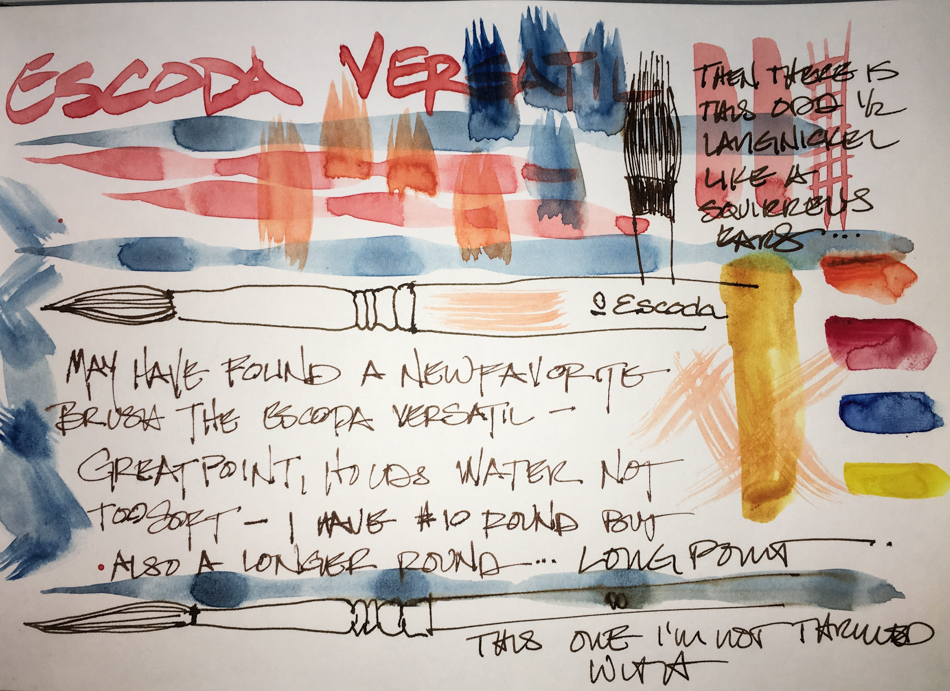 ESCODA VERSATIL
THEN THERE IS
THIS ODD 1/2
LANGNICKEL
LIKE A
SQUIRRELS
EARS....
Escoda
MAY HAVE FOUND A NEW FAVORITE
BRUSH THE ESCODA VERSATIL -
GREAT POINT, HOLDS WATER NOT
TOO SOFT - I HAVE #10 ROUND BUT
ALSO A LONGER ROUND... LONG POINT
THIS ONE I'M NOT THRILLED
WITH